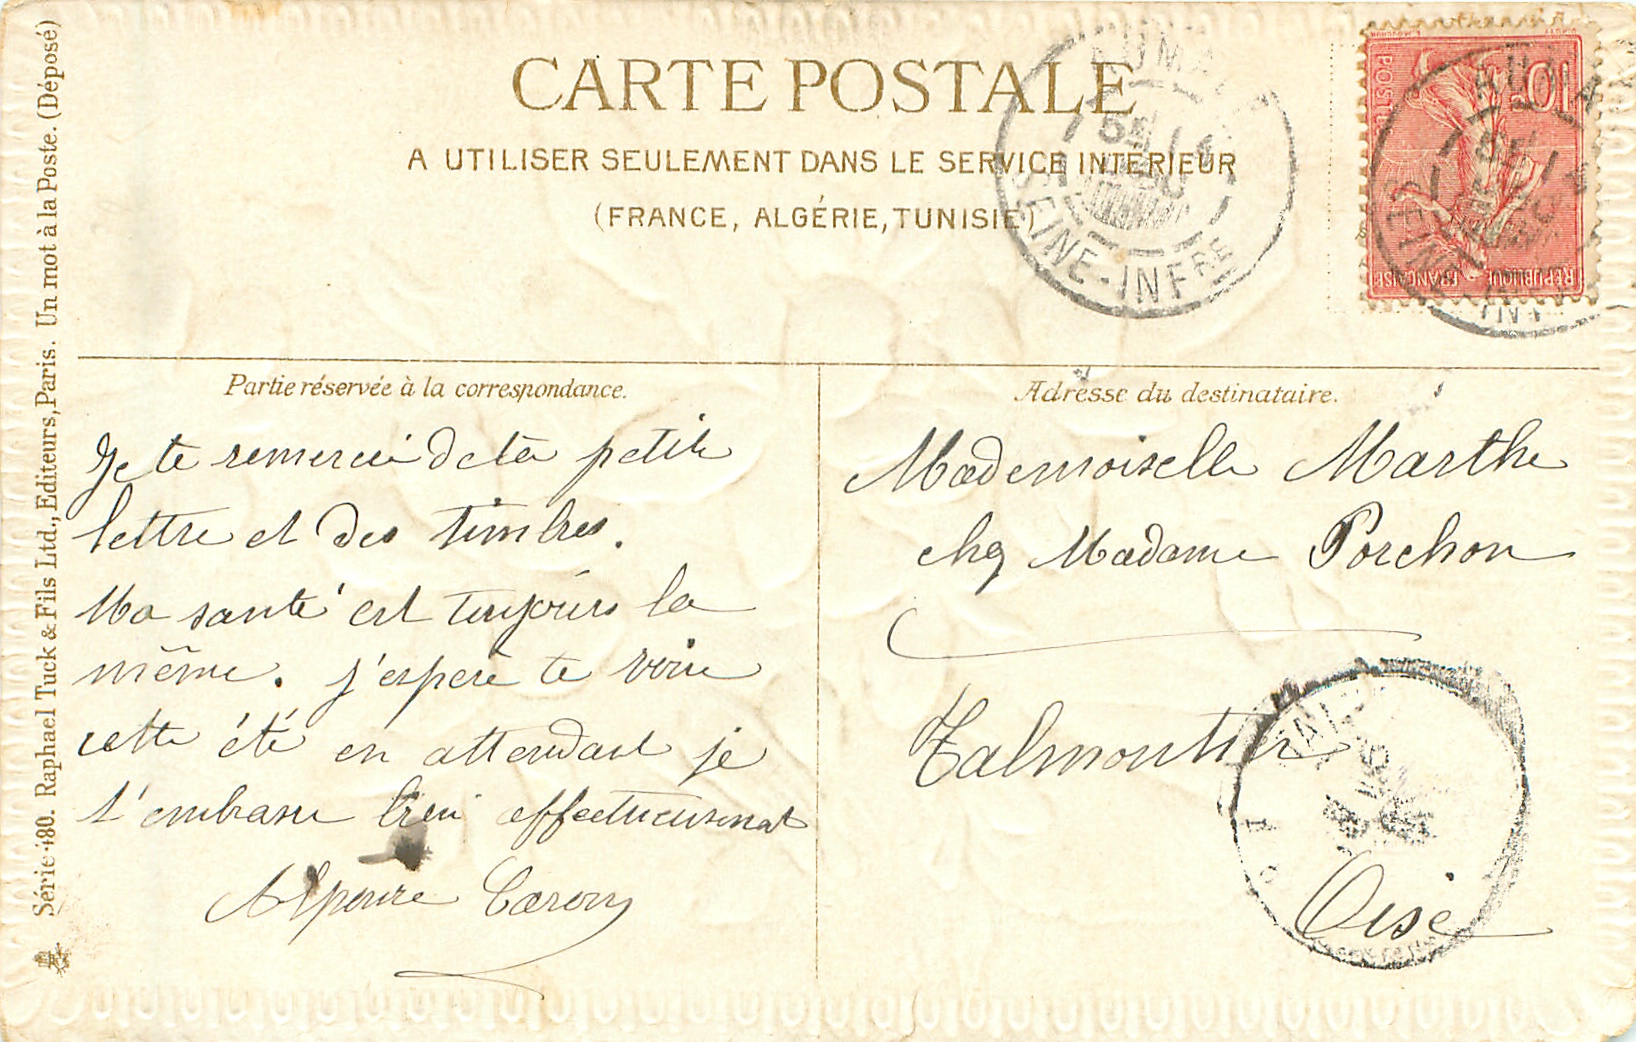 CARTE POSTALE
A UTILISER SEULEMENT DANS LE SERVICE INTERIEUR
(FRANCE, ALGÉRIE, TUNISIE)
SEINE-INFRE
10c
POSTES
REPUBLIQUE FRANÇAISE
Partie réservée à la correspondance.
Je te remercie de ta petite
lettre et des timbres.
Ma santé est toujours la
même. j'espère te voire
cette été en attendant je
t'embrasse bien affectueusement
Caron
Adresse du destinataire.
Mademoiselle Marthe
chez Madame Porchon
Talmontier
Oise
Série 480. Raphael Tuck & Fils Ltd., Editeurs, Paris. Un mot à la Poste. (Déposé)